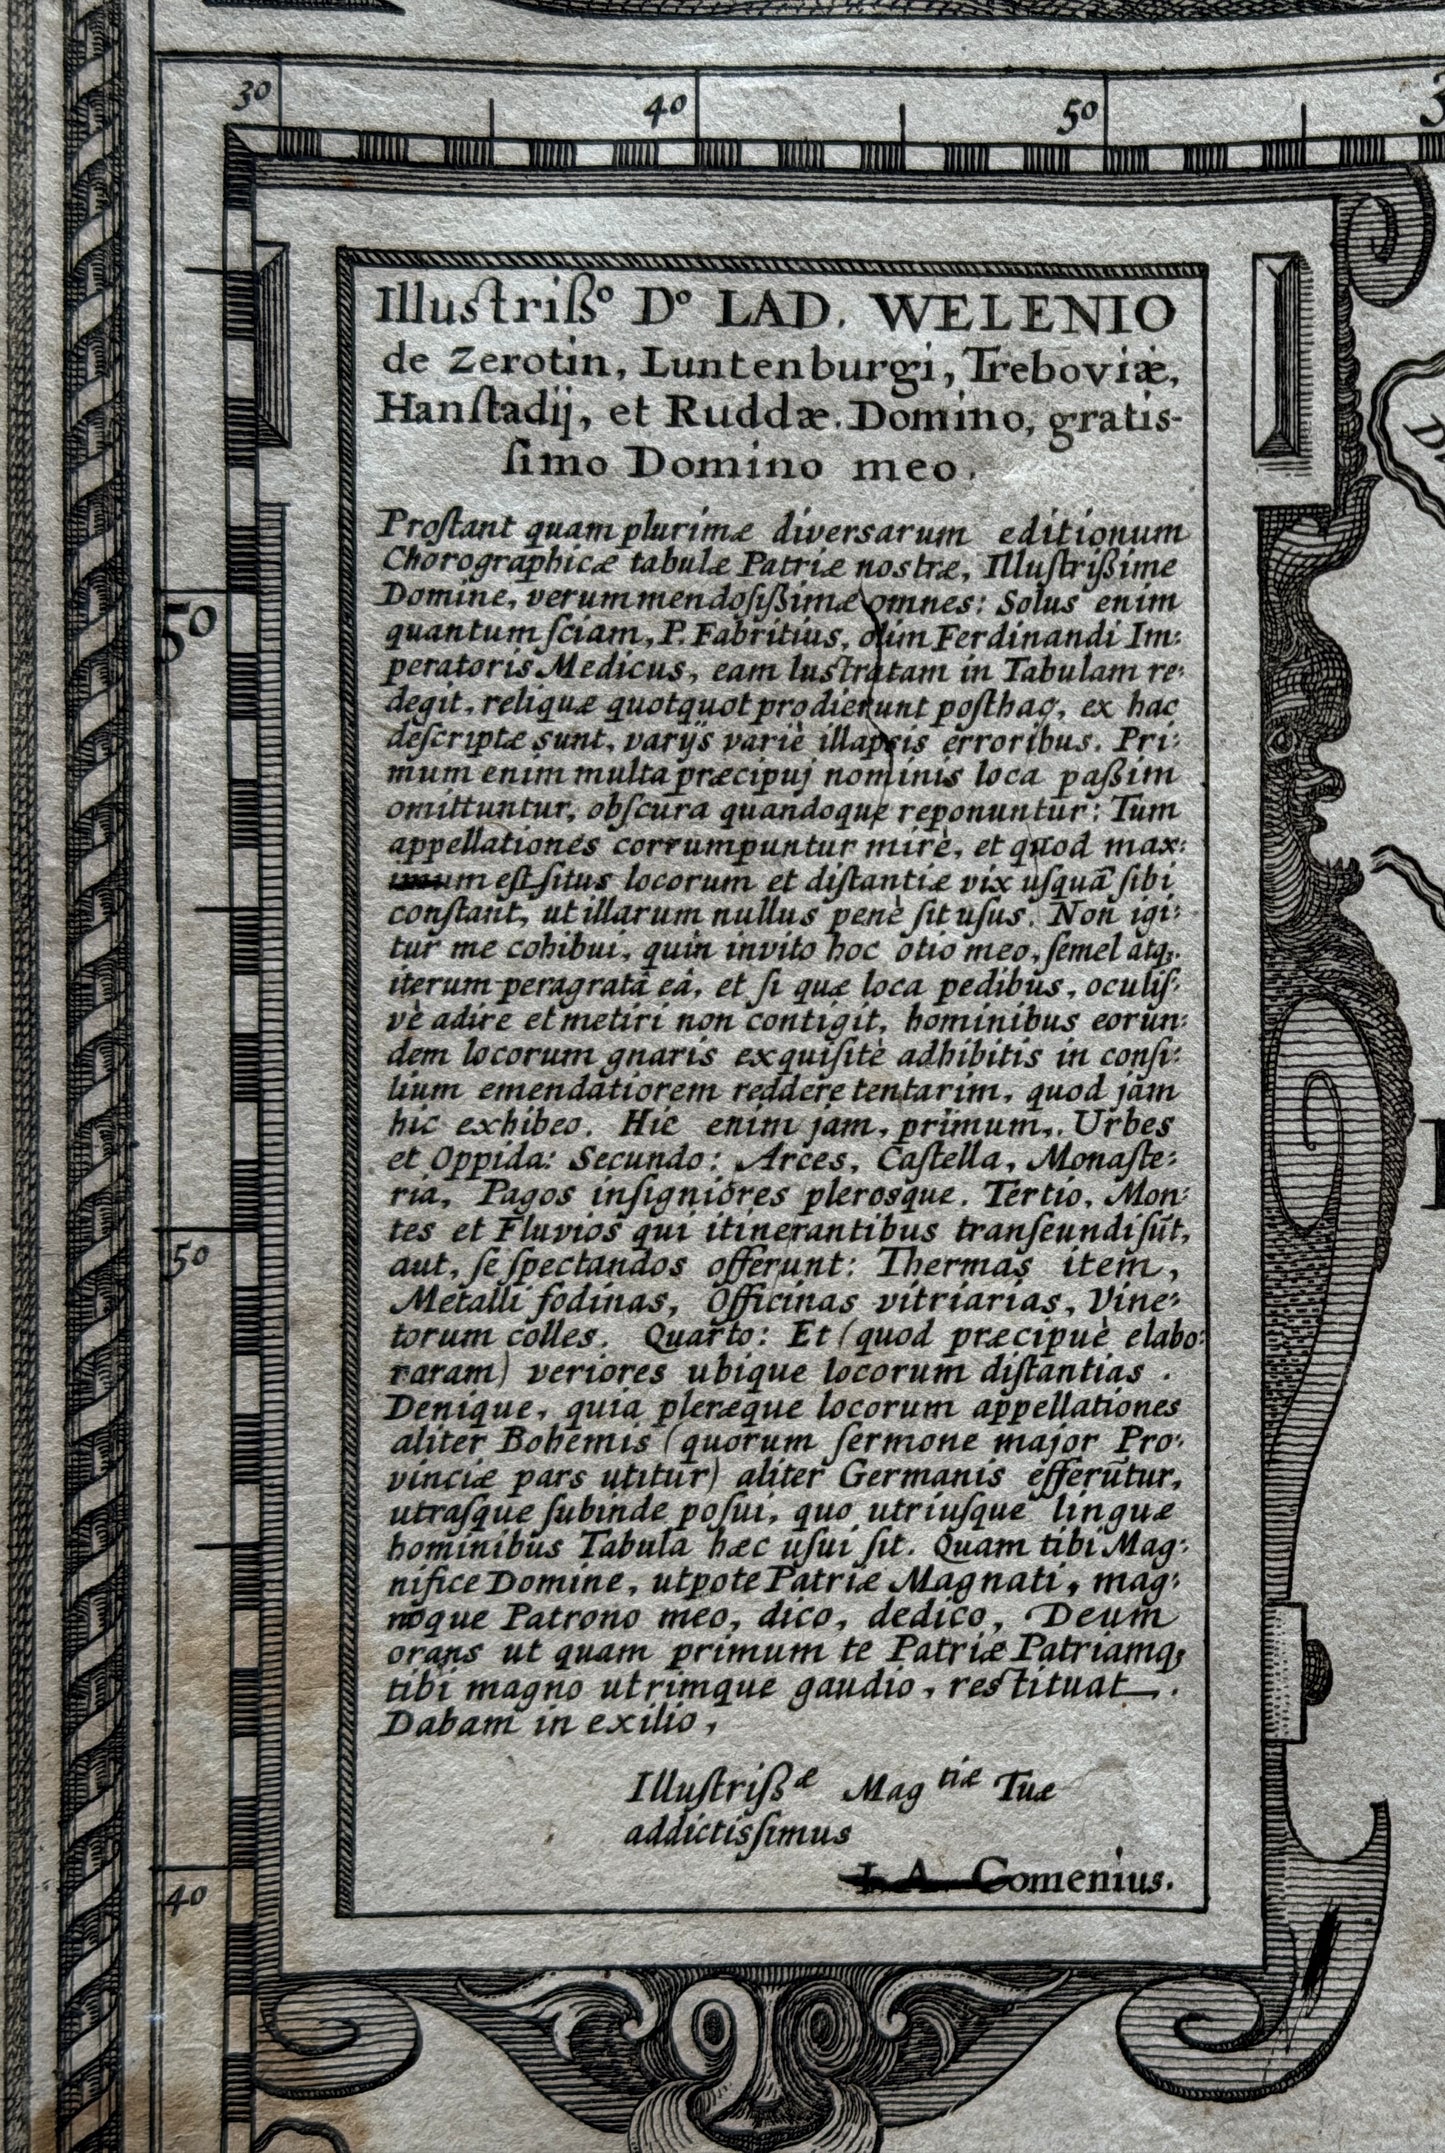 30
40
50
Illustriß.º Dº LAD. WELENIO
de Zerotin, Luntenburgi, Treboviæ,
Hanſtadij, et Ruddæ. Domino, gratis-
ſimo Domino meo.
Proſtant quam plurimæ diversarum editionum
Chorographicæ tabulæ Patriæ nostræ, Illuſtrißime
Domine, verum mendoſißimæ omnes: Solus enim
quantum ſciam, P. Fabritius, olim Ferdinandi Im:
peratoris Medicus, eam lustratam in Tabulam re:
degit, reliquæ quotquot prodierunt poſthac, ex hac
deſcriptæ sunt, varijs variè illapsis erroribus. Pri:
mum enim multa præcipuj nominis loca paßim
omittuntur, obſcura quandoque reponuntur: Tum
appellationes corrumpuntur mirè, et quod max:
imum eſt ſitus locorum et diſtantiæ vix uſquã ſibi
conſtant, ut illarum nullus penè ſit uſus. Non igi:
tur me cohibui, quin invito hoc otio meo, ſemel atq;
iterum peragratâ eâ, et ſi quæ loca pedibus, oculiſ:
vè adire et metiri non contigit, hominibus eorun:
dem locorum gnaris exquiſitè adhibitis in conſi:
lium emendatiorem reddere tentarim, quod jam
hic exhibeo. Hic enim jam, primum, Urbes
et Oppida: Secundo: Arces, Caſtella, Monaſte:
ria, Pagos inſigniores plerosque. Tertio, Mon:
tes et Fluvios qui itinerantibus tranſeundi ſũt,
aut, ſe ſpectandos offerunt: Thermas item,
Metalli fodinas, Officinas vitriarias, Vine:
torum colles. Quarto: Et (quod præcipuè elabo:
raram) veriores ubique locorum diſtantias.
Denique, quia pleræque locorum appellationes
aliter Bohemis (quorum ſermone major Pro:
vinciæ pars utitur) aliter Germanis efferũtur,
utraſque ſubinde poſui, quo utriuſque linguæ
hominibus Tabula hæc uſui ſit. Quam tibi Mag:
nifice Domine, utpote Patriæ Magnati, mag:
noque Patrono meo, dico, dedico, Deum
orans ut quam primum te Patriæ Patriamq;
tibi magno utrimque gaudio, restituat.
Dabam in exilio,
Illuſtrißæ Magtiæ Tuæ
addictisſimus
I. A. Comenius.
50
50
40